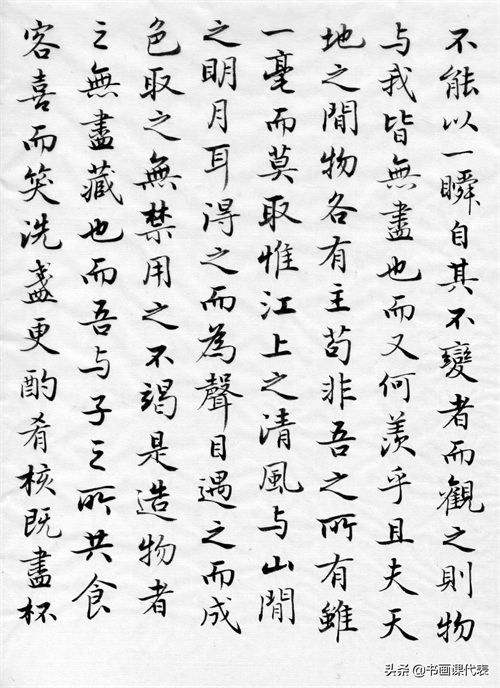 不能以一瞬自其不變者而觀之則物
与我皆無盡也而又何羨乎且夫天
地之間物各有主苟非吾之所有雖
一毫而莫取惟江上之清風与山間
之明月耳得之而為聲目遇之而成
色取之無禁用之不竭是造物者
之無盡藏也而吾与子之所共食
客喜而笑洗盞更酌肴核既盡杯
头条 @书画课代表